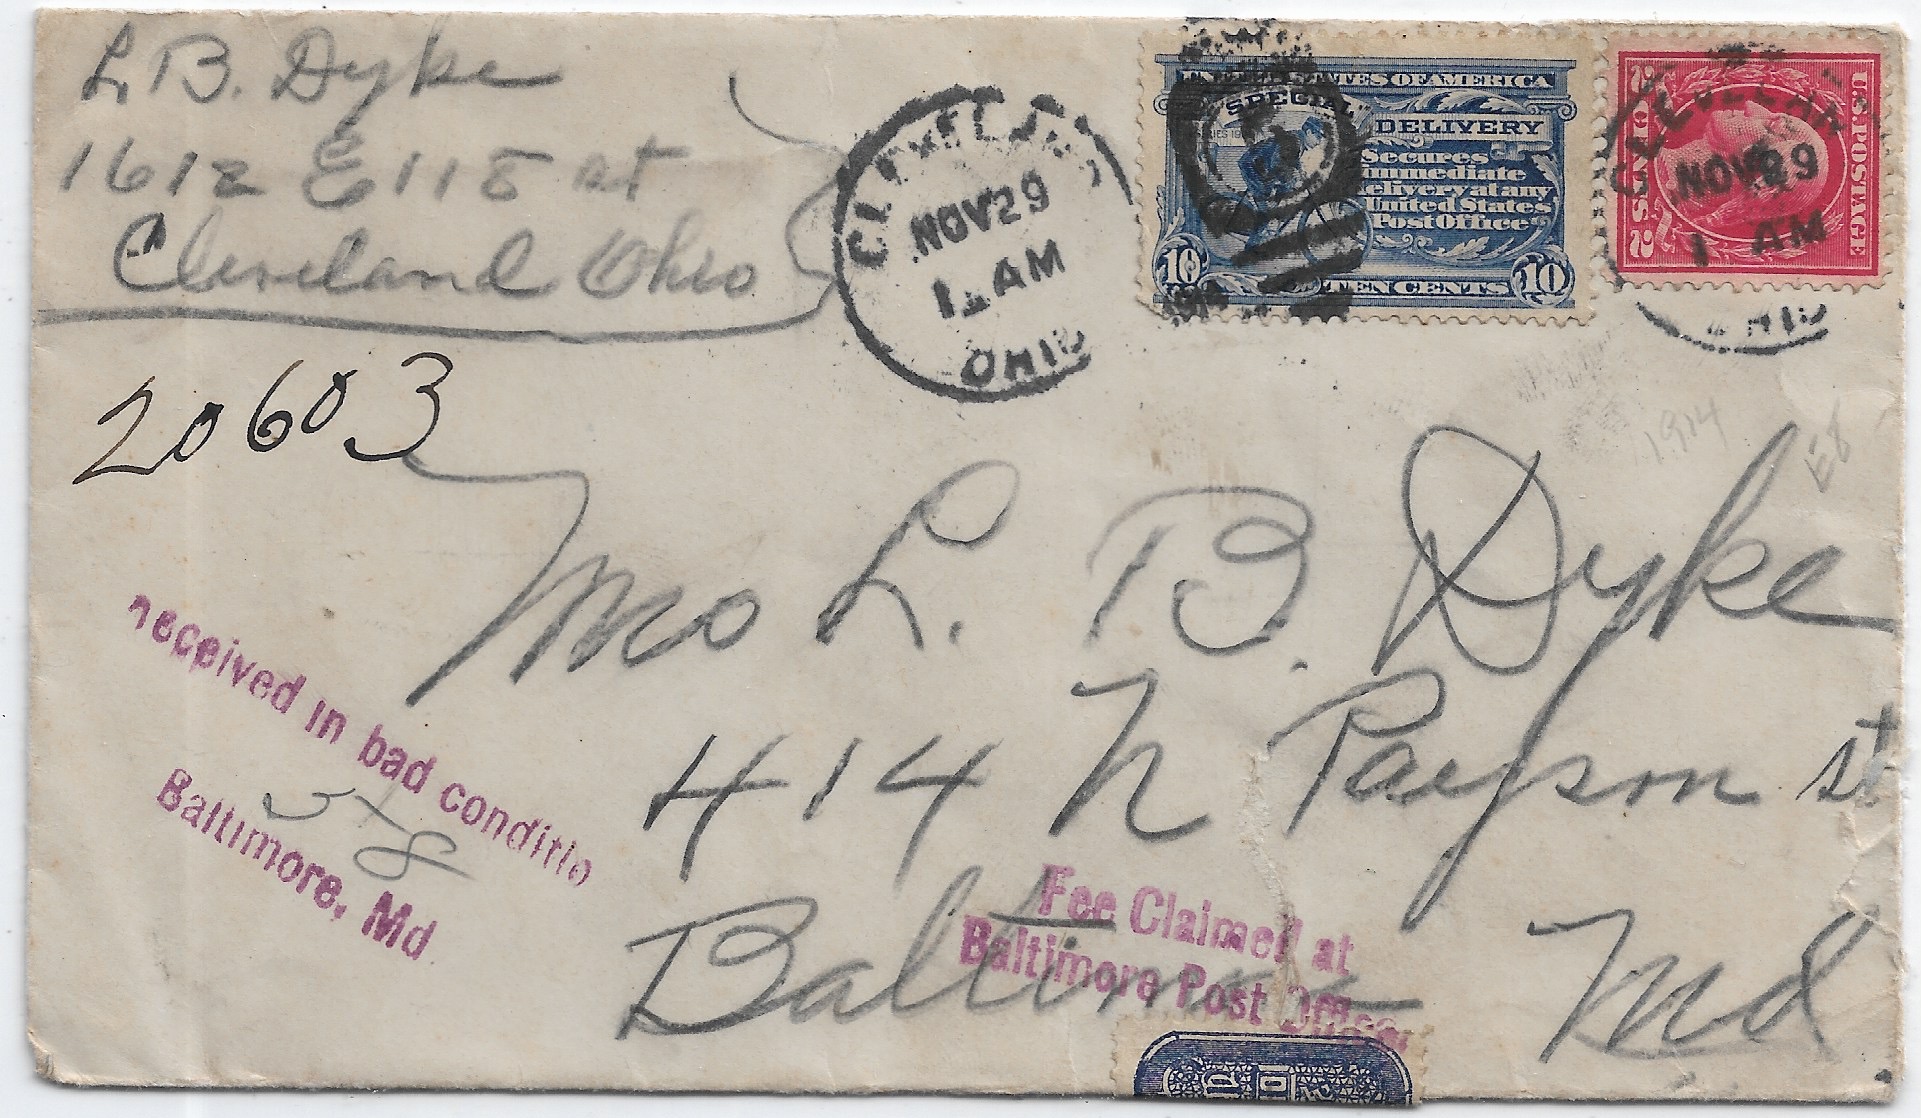 L B. Dyke
1612 E 118 st
Cleveland Ohio
CLEVELAND
NOV 29
1 AM
OHIO
UNITED STATES OF AMERICA
SPECIAL
DELIVERY
Secures
immediate
delivery at any
United States
Post Office
10 TEN CENTS 10
U.S. POSTAGE
2 CENTS 2
CLEVELAND
NOV 29
1 AM
OHIO
20603
1914
E8
Mrs L. B. Dyke
414 N Payson st
Baltimore Md
received in bad conditio
Baltimore, Md
Fee Claimed at
Baltimore Post Office.